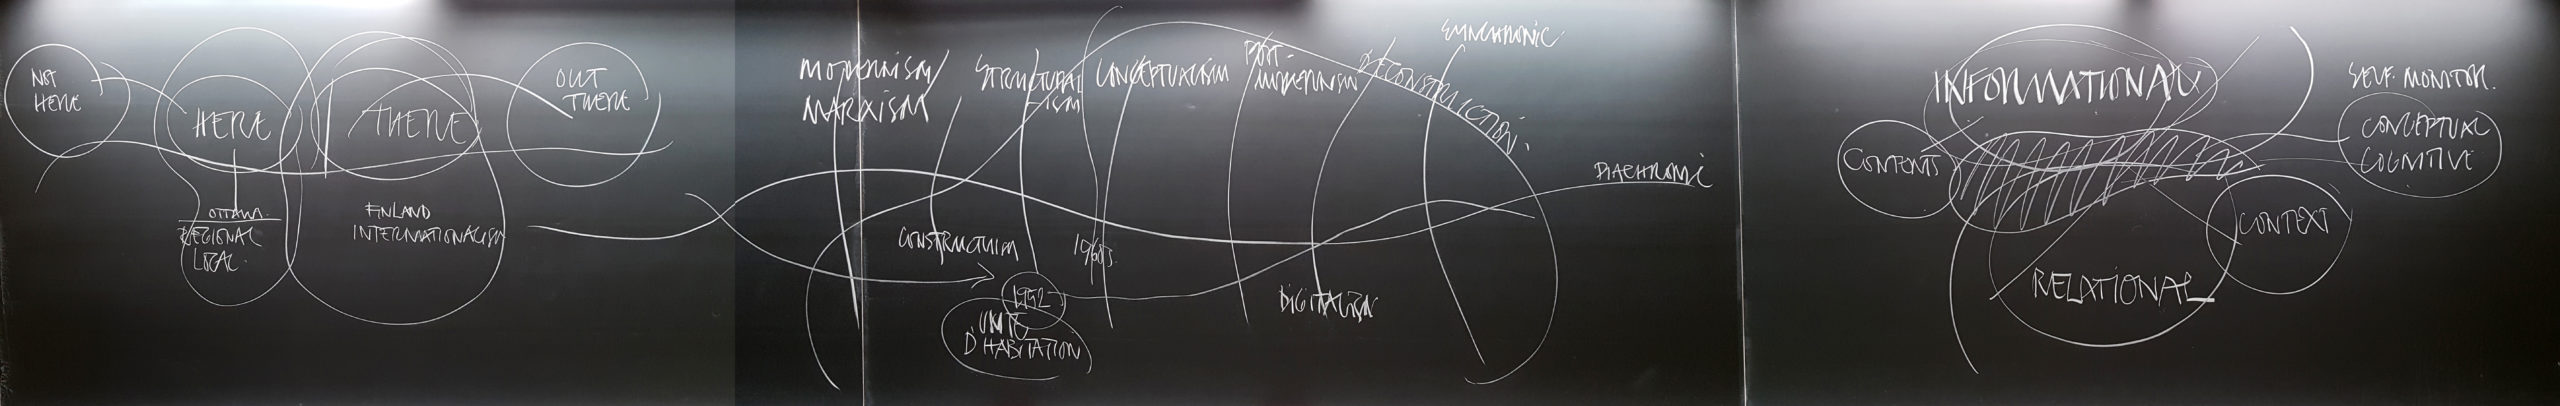 NOT
HERE
HERE
THERE
OUT
THERE
OTTAWA.
REGIONAL
LOCAL.
FINLAND
INTERNATIONALISM
MODERNISM/
MARXISM
STRUCTURAL
ISM
CONCEPTUALISM
POST-
MODERNISM
DECONSTRUCTION.
SYNCHRONIC.
CONSTRUCTIVISM
1960S
1952
UNITE
D'HABITATION
DIGITALISM
DIACHRONIC
INFORMATIONAL
CONTENTS
RELATIONAL
CONTEXT
SELF. MONITOR.
CONCEPTUAL
COGNITIVE